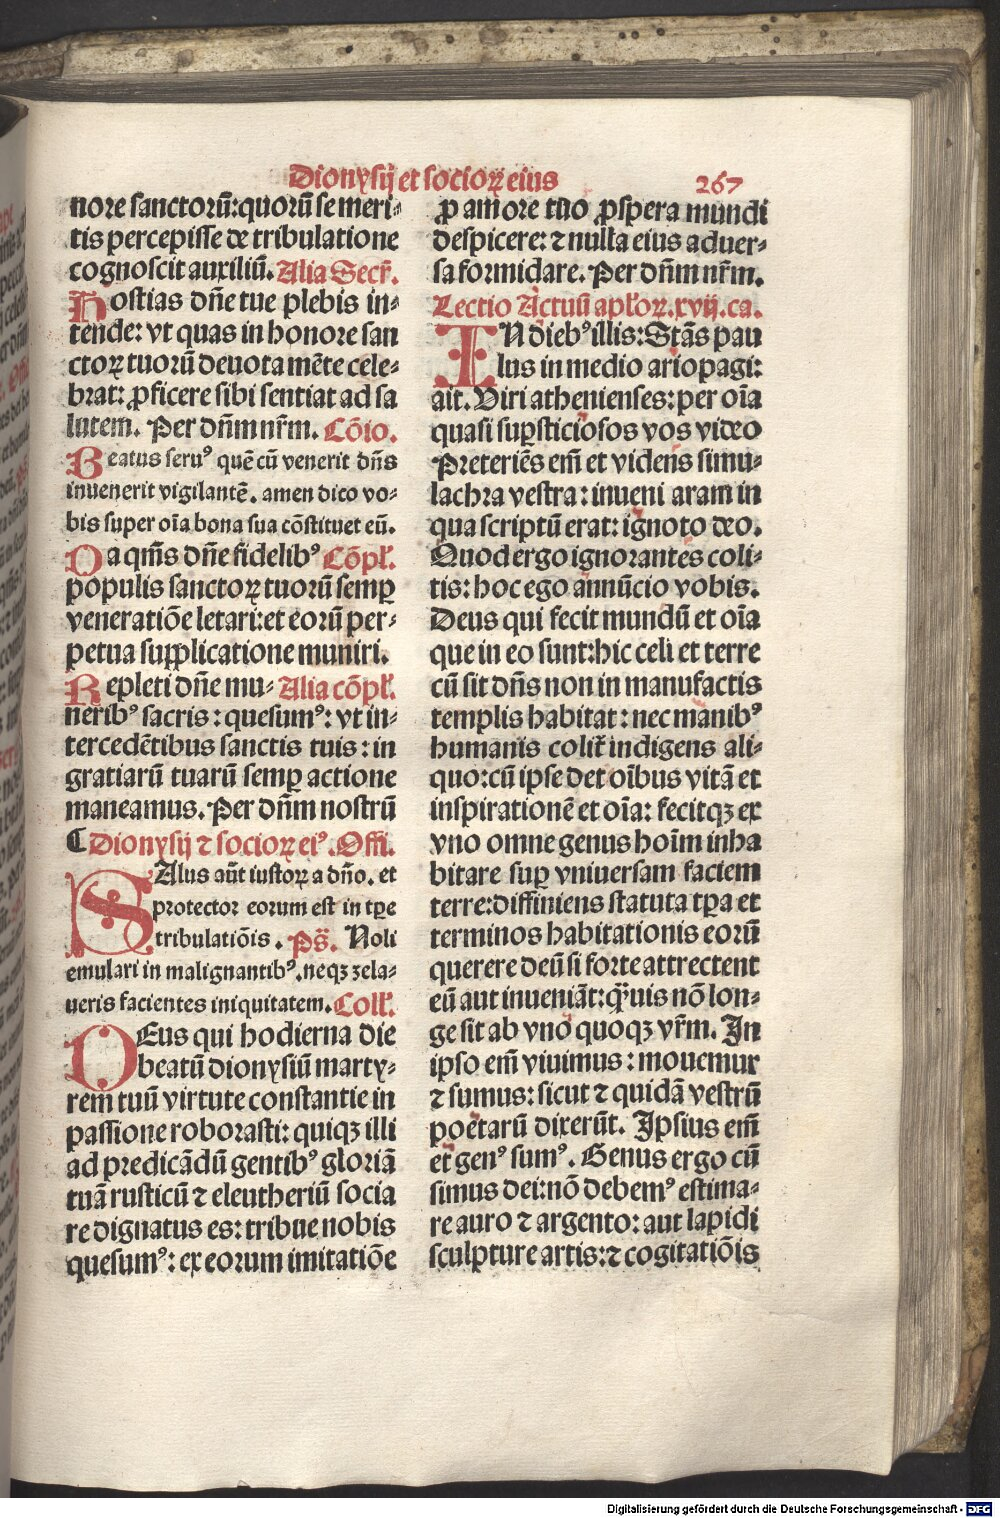 Dionysij et socioꝝ eius 267
nore sanctorū: quorū se meri⸗
tis percepisse de tribulatione
cognoscit auxiliū. Alia Secr̄.
Hostias dn̄e tue plebis in⸗
tende: vt quas in honore san
ctoꝝ tuorū deuota mēte cele⸗
brat: ꝓficere sibi sentiat ad sa
lutem. Per dn̄m nr̄m. Cōio.
Beatus seruꝰ quē cū venerit dn̄s
inuenerit vigilantē. amen dico vo⸗
bis super oīa bona sua cōstituet eū.
Da qm̄s dn̄e fidelibꝰ Cōpl̄.
populis sanctoꝝ tuorū semꝑ
veneratiōe letari: et eorū per⸗
petua supplicatione muniri.
Repleti dn̄e mu⸗ Alia cōpl̄.
neribꝰ sacris: quesumꝰ: vt in⸗
tercedētibus sanctis tuis: in
gratiarū tuarū semꝑ actione
maneamus. Per dn̄m nostrū
¶ Dionysij ⁊ socioꝝ eiꝰ. Offi.
SAlus aūt iustoꝝ a dn̄o. et
protector eorum est in tꝑe
tribulatiōis. Ps̄. Noli
emulari in malignantibꝰ. neqꝫ zela⸗
ueris facientes iniquitatem. Coll̄.
DEus qui hodierna die
beatū dionysiū marty⸗
rem tuū virtute constantie in
passione roborasti: quiqꝫ illi
ad predicādū gentibꝰ gloriā
tuā rusticū ⁊ eleutheriū socia
re dignatus es: tribue nobis
quesumꝰ: ex eorum imitatiōe
ꝓ amore tuo ꝓspera mundi
despicere: ⁊ nulla eius aduer⸗
sa formidare. Per dn̄m nr̄m.
Lectio Actuū apl'oꝝ. xvij. ca.
IN diebꝰ illis: Stās pau
lus in medio ariopagi:
ait. Viri athenienses: per oīa
quasi suꝑsticiosos vos video
Preteriēs em̄ et videns simu⸗
lachra vestra: inueni aram in
qua scriptū erat: ignoto deo.
Quod ergo ignorantes coli⸗
tis: hoc ego annūcio vobis.
Deus qui fecit mundū et oīa
que in eo sunt: hic celi et terre
cū sit dn̄s non in manufactis
templis habitat: nec manibꝰ
humanis colit̄ indigens ali⸗
quo: cū ipse det oībus vitā et
inspirationē et oīa: fecitqꝫ ex
vno omne genus hoīm inha
bitare suꝑ vniuersam faciem
terre: diffiniens statuta tꝑa et
terminos habitationis eorū
querere deū si forte attrectent
eū aut inueniāt: q̄ꝫuis nō lon⸗
ge sit ab vno quoqꝫ vr̄m. In
ipso em̄ viuimus: mouemur
⁊ sumus: sicut ⁊ quidā vestrū
poetarū dixerūt. Ipsius em̄
et genꝰ sumꝰ. Genus ergo cū
simus dei: nō debemꝰ estima⸗
re auro ⁊ argento: aut lapidi
sculpture artis: ⁊ cogitatiōis
Digitalisierung gefördert durch die Deutsche Forschungsgemeinschaft - DFG